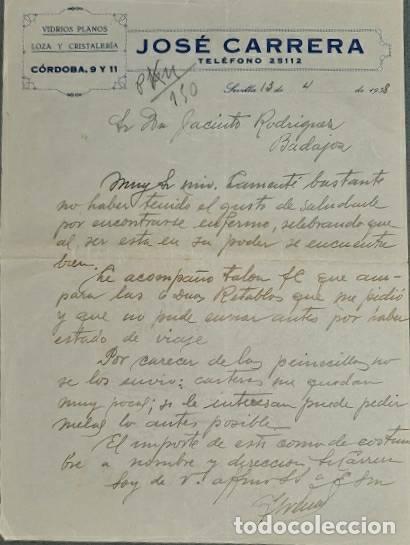 VIDRIOS PLANOS
LOZA Y CRISTALERÍA
CÓRDOBA, 9 Y 11
JOSÉ CARRERA
TELÉFONO 25112
130
Sevilla 13 de 4 de 1938
Sr Dn Jacinto Rodriguez
Badajoz
Muy Sr mio. Lamenté bastante
no haber tenido el gusto de saludarle
por encontrarse enfermo, celebrando que
al ser esta en su poder se encuentre
bien.
Le acompaño talon que am-
para las 6 Dnas Retablos que me pidió
y que no pude enviar antes por haber
estado de viaje
Por carecer de las no
se los envio; carteras me quedan
muy pocas; si le interesan puede pedir
melas lo antes posible.
El importe de esta como de costum
bre a nombre y direccion
Soy de V. affmo
todocoleccion